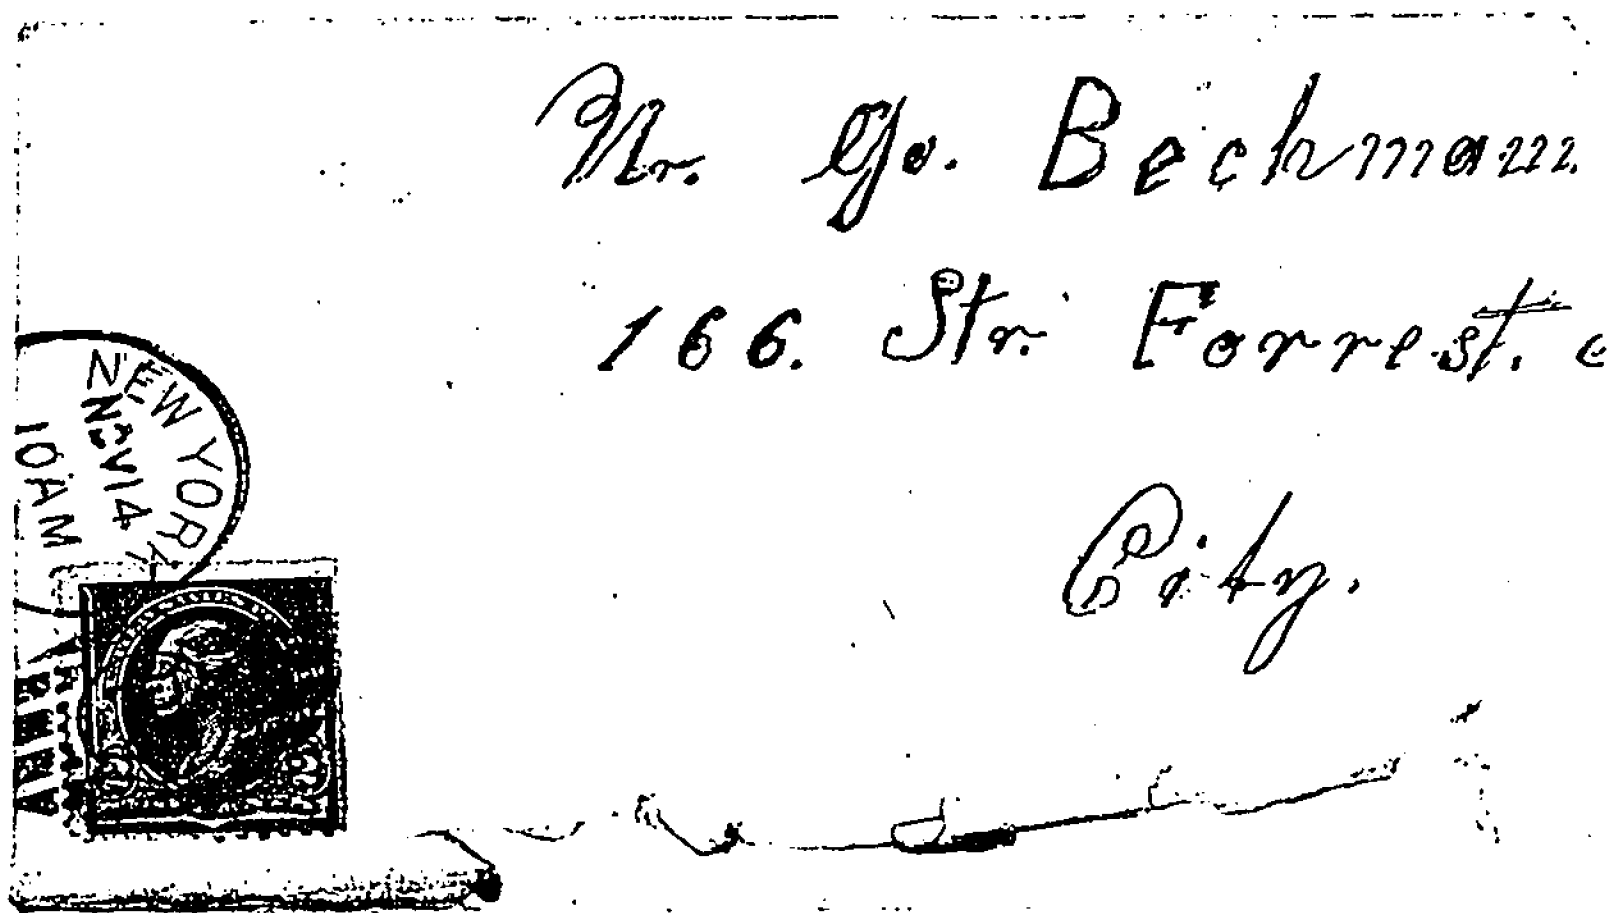 Mr. Go. Beckmann.
166. Str. Forrest.
City.
NEW YORK
NOV 14
10 AM
2 2